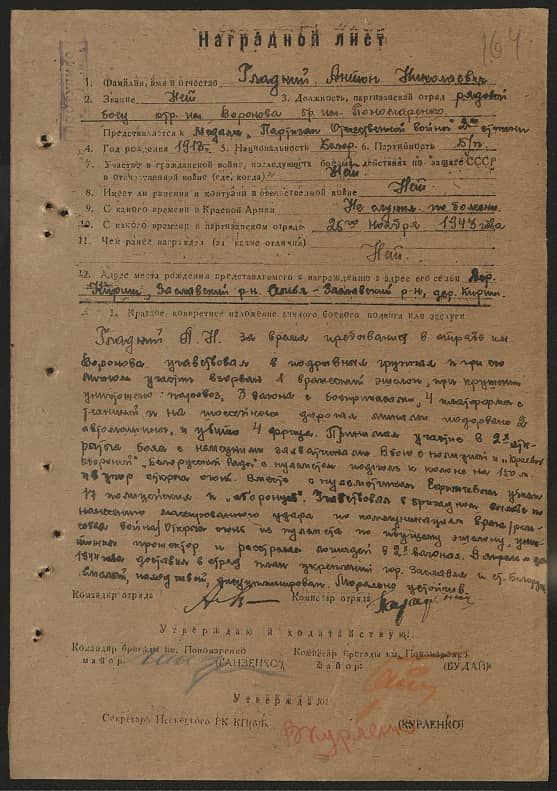 164
Наградной лист
1. Фамилия, имя и отчество Гладкий Антон Николаевич
2. Звание Нет 3. Должность, партизанский отряд рядовой
боец отр. им. Воронова бр. им. Пономаренко
Представляется к Медали „Партизан Отечественной войны" 2й степени
4. Год рождения 1918. 5. Национальность Белор. 6. Партийность Б/п.
7. Участие в гражданской войне, последующих боевых действиях по защите СССР
в Отечественной войне (где, когда) Нет
8. Имеет ли ранения и контузии в отечественной войне Нет.
9. С какого времени в Красной Армии Не служил по болезни.
10. С какого времени в партизанском отряде 26го ноября 1943 года
11. Чем ранее награжден (за какие отличия)
Нет.
12. Адрес места рождения представляемого к награждению и адрес его семьи дер.
Кириши, Заславский р-н. Семья - Заславский р-н, дер. Кириши.
1. Краткое, конкретное изложение личного боевого подвига или заслуги
Гладкий А. Н. за время пребывания в отряде им.
Воронова участвовал в подрывных группах и при его
личном участии взорван 1 вражеский эшелон, при крушении
уничтожено: паровоз, 3 вагона с боеприпасами, 4 платформы с
техникой и на шоссейной дороге минами подорвано 2
автомашины, и убито 4 фрица. Принимал участие в 2х откр
рытых боях с немецкими захватчиками. В бою с полицией и „Краевой
Обороной" „Белорусской Рады" с пулеметом подполз к колоне на 150 м.
и в упор открыл огонь. Вместе с пулеметчиком убили
17 полицейских и „оборонцев". Участвовал в бригадном
нанесению массированного удара по коммуникациям врага (рель-
совая война) открыл огонь из пулемета по идущему эшелону, уни-
прожектор и расстрелял лошадей в 2х вагонах. В апреле м-це
1944 года доставил в отряд план укреплений гор. Заславля и ст. Беларусь
Смелый, находчивый, дисциплинирован. Морально устойчив.
Командир отряда Комиссар отряда
Утверждай и ходатайствую:
Командир бригады им. Пономаренко Комиссар бригады им. Пономаренко
майор: (БУДАЙ)
Утверждаю:
Секретарь РК КП(б)Б (КУРЛЕНКО)
ВКурленко